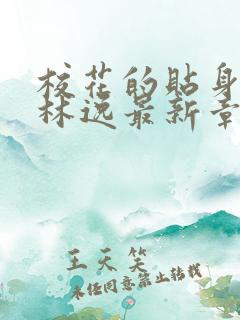 校花的贴身
林逸最新章
王天笑
未经同意禁止转载